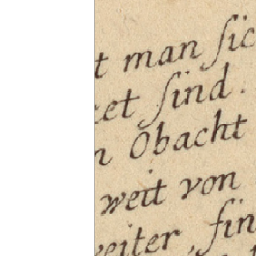 t man sic
et sind.
n Obacht
weit von
weiter, fin